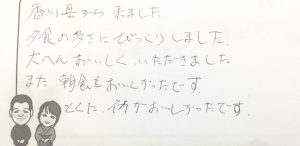 香川県から来ました.
夕食の多さにびっくりしました.
大へんおいしく.いただきました
また 朝食もおいしかったです.
とくに.イカがおいしかったです.